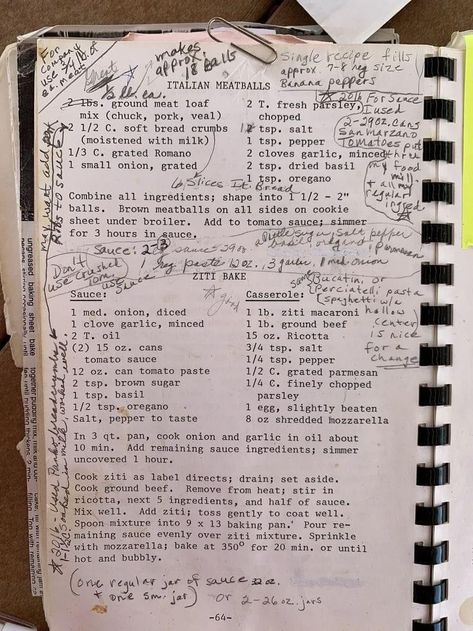 For
company
use 3/4 lb. of
ea. meat
makes
approx.
18 balls
Single recipe fills
approx. 7-8 reg size
Banana peppers
Great
ITALIAN MEATBALLS
ea.
2 lbs. ground meat loaf
mix (chuck, pork, veal)
2 1/2 C. soft bread crumbs
(moistened with milk)
1/3 C. grated Romano
1 small onion, grated
6 Slices It. Bread
2 T. fresh parsley,
chopped
tsp. salt
1 tsp. pepper
2 cloves garlic, minced
2 tsp. dried basil
1 tsp. oregano
2016 For Sauce
I used
2-29oz. Cans
San Marzano
Tomatoes put
thru
my food
mill
+ all my
regular
ingred.
Combine all ingredients; shape into 1 1/2 - 2"
balls. Brown meatballs on all sides on cookie
sheet under broiler. Add to tomato sauce; simmer
for 3 hours in sauce.
may want add pork
Ribs to sauce
Sauce: sauce 29oz
salt pepper
basil oregano parmesan
paste 12 oz. , 3 garlic 1 med onion
Don't
use crushed
tom.
sauce
ZITI BAKE
good
Sauce:
1 med. onion, diced
1 clove garlic, minced
2 T. oil
(2) 15 oz. cans
tomato sauce
12 oz. can tomato paste
2 tsp. brown sugar
1 tsp. basil
1/2 tsp. oregano
Salt, pepper to taste
Casserole:
1 lb. ziti macaroni
1 lb. ground beef
15 oz. Ricotta
3/4 tsp. salt
1/4 tsp. pepper
1/2 C. grated parmesan
1/4 C. finely chopped
parsley
1 egg, slightly beaten
8 oz shredded mozzarella
Bucatini or
Perciatelli pasta
(spaghetti w/a
hallow
center)
is nice
for a
change
In 3 qt. pan, cook onion and garlic in oil about
10 min. Add remaining sauce ingredients; simmer
uncovered 1 hour.
Cook ziti as label directs; drain; set aside.
Cook ground beef. Remove from heat; stir in
ricotta, next 5 ingredients, and half of sauce.
Mix well. Add ziti; toss gently to coat well.
Spoon mixture into 9 x 13 baking pan. Pour re-
maining sauce evenly over ziti mixture. Sprinkle
with mozzarella; bake at 350° for 20 min. or until
hot and bubbly.
Used Panko breadcrumbs
soaked in milk, worked well.
(one regular jar of sauce
+ one sm. jar) or 2-26 oz. jars
-64-